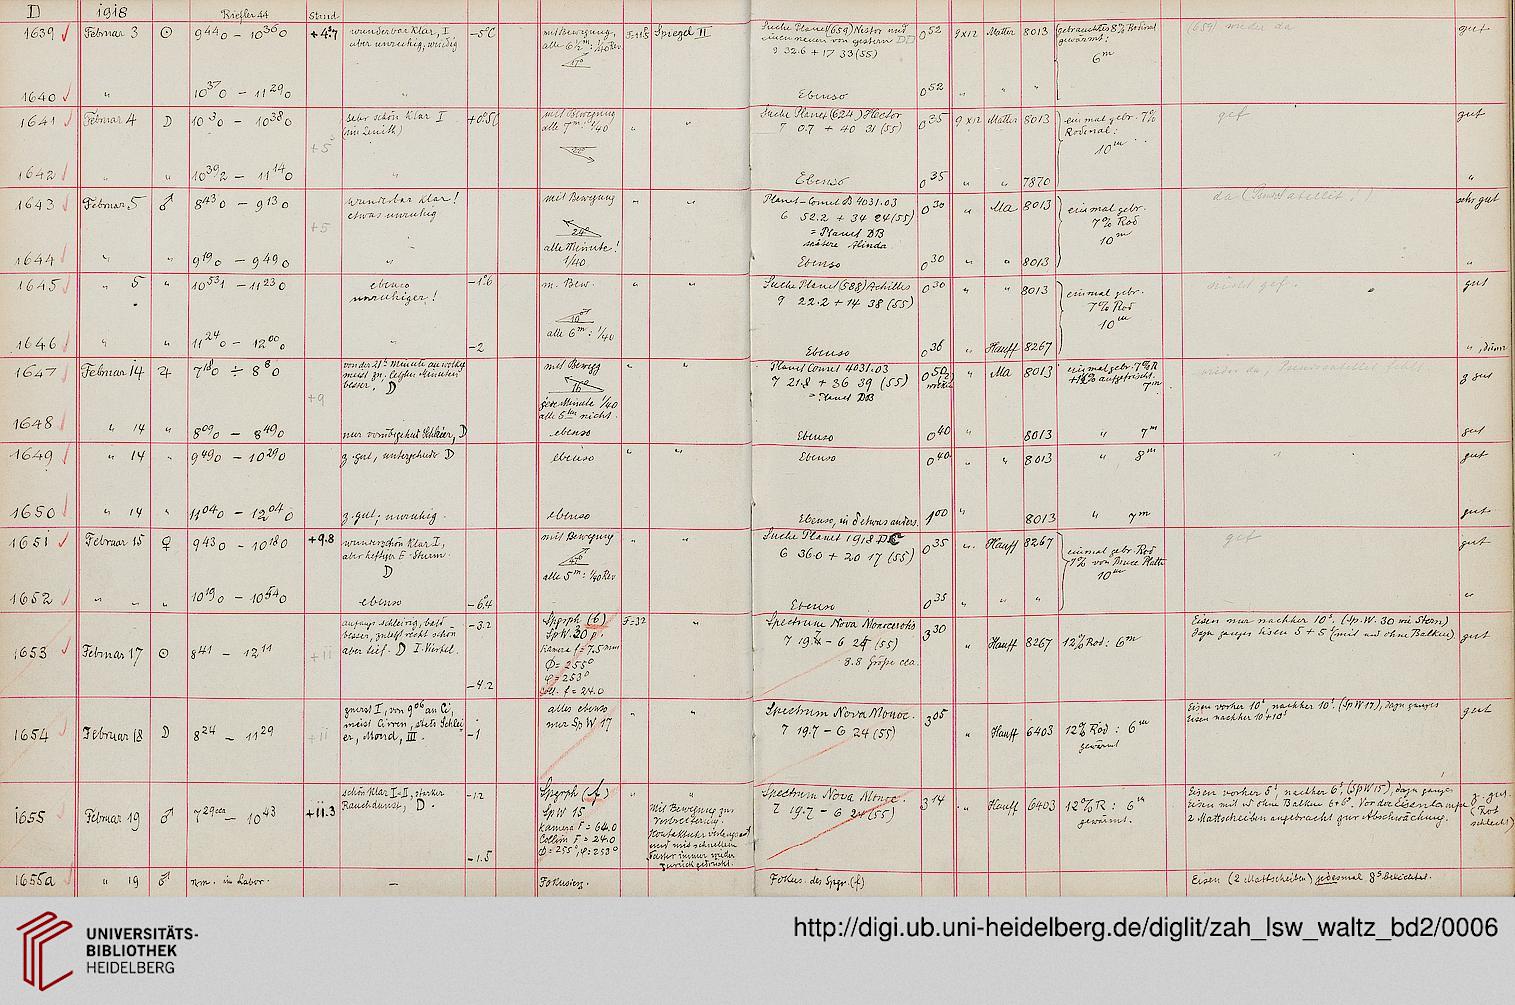 D 1918 Riefler 44 Stand
1639 Februar 3 ☉ 9 44 0 – 10 36 0 +4.7 wunderbar klar, I –5°C mit Bewegung, F=118 Spiegel II Suche Planet (659) Nestor und 0 52 9x12 Matter 8013 gebrauchtes 8% Rodinal (659) wieder da gut
aber unruhig, windig alle 6½ m: 1/40 Rev. einen neuen von gestern gewärmt:
17° 9 32.6 + 17 33 (55) 6 m
1640 " 10 37 0 – 11 29 0 " Ebenso 0 52 " " "
1641 Februar 4 D 10 3 0 – 10 38 0 sehr schön klar I mit Bewegung Suche Planet (624) Hector 0 35 9x12 Matter 8013 einmal gebr. 7% gef gut
(im Zenith) alle 7 m: 1/40 " " 7 0.7 + 40 31 (55) Rodinal:
+5 10 m
1642 " " 10 39 2 – 11 14 0 " Ebenso 0 35 " " 7870 "
1643 Februar 5 ♂ 8 43 0 – 9 13 0 wunderbar klar! mit Bewegung " " Planet-Comet B 4031.03 0 30 " Ma 8013 einmal gebr. sehr gut
etwas unruhig 6 52.2 + 34 24 (55) 7% Rod
+5 24° = Planet DB 10 m
alle Minute! spätere Alinda
1644 " " 9 19 0 – 9 49 0 " 1/40 Ebenso 0 30 " " 8013 "
1645 " 5 " 10 53 1 – 11 23 0 ebenso –1.6 m. Bew. " " Suche Planet (588) Achilles 0 30 " " 8013 einmal gebr. nicht gef. gut
unruhiger! 9 22.2 + 14 38 (55) 7% Rod
10 m
alle 6 m: 1/40
1646 " " 11 24 0 – 12 00 0 " –2 Ebenso 0 36 " Hauff 8267 ", dünn
1647 Februar 14 ♃ 7 18 0 ÷ 8 8 0 von der 21t Minute an wolkig mit Bewegg " " Planet Comet 4031.03 0 50 " Ma 8013 einmal gebr. 7% R z gut
meist zu. letzten Minuten 7 21.8 + 36 39 (55) aufgefrischt.
besser, D 16° = Planet DB 7 m
+9 jede Minute 1/40
alle 5 ten nicht.
1648 " 14 " 8 09 0 – 8 49 0 nur vorübergehend Schleier, D ebenso Ebenso 0 40 " 8013 " 7 m gut
1649 " 14 " 9 49 0 – 10 29 0 z. gut, untergehnder D ebenso " " Ebenso 0 40 " " 8013 " 8 m gut
1650 " 14 " 11 04 0 – 12 04 0 z. gut; unruhig. ebenso Ebenso, in δ etwas anders. 1 00 " 8013 " 7 m gut
1651 Februar 15 ♀ 9 43 0 – 10 18 0 +9.8 wunderschön klar I, mit Bewegung " " Suche Planet 1918 DC 0 35 " Hauff 8267 einmal gebr. Rod gef gut
aber heftiger E-Sturm. 6 36.0 + 20 17 (55) 7% von neuer Platte
D 10 m
alle 5 m: 1/40 Rev
1652 " " " 10 19 0 – 10 54 0 ebenso –6.4 Ebenso 0 35 " " " "
1653 Februar 17 ☉ 8 41 – 12 11 +11 anfangs schleirig, bald –3.2 Spgrph (b) F=32 " Spectrum Nova Monocerotis 3 30 " Hauff 8267 12% Rod: 6 m Eisen nur nachher 10 s. (Sp.W. 30 wie Stern) gut
besser, zuletzt recht schön SpW. 30 p. 7 19.7 – 6 24 (55) dazu ganzes Eisen 5 + 5 s (mit und ohne Balken)
aber tief. D I. Viertel. Kamera f=7.5 mm 8.8 Größe cca.
Φ = 255°
–4.2 φ = 253°
Coll. f = 24.0
1654 Februar 18 D 8 24 – 11 29 +11 zuerst I, von 9 06 an Ci, alles ebenso " " Spectrum Nova Monoc. 3 05 " Hauff 6403 12% Rod: 6 m Eisen vorher 10 s, nachher 10 s. (SpW 17), dazu ganzes gut
meist Cirren, stets Schlei– nur SpW 17 7 19.7 – 6 24 (55) gewärmt Eisen nachher 10+10 s
er, Mond, III. –1
1655 Februar 19 ♂ 7 29 cca – 10 43 +11.3 schön klar I–II, starker –12 Spgrph (b) " " Spectrum Nova Monoc. 3 14 " Hauff 6403 12% R: 6 m Eisen vorher 5 s, nachher 6 s, (SpW 15), dazu ganzes z. gut.
Rauchdunst, D. SpW 15 Mit Bewegung zur 7 19.7 – 6 24 (55) gewärmt. Eisen mit u ohne Balken 6+6 s. Vor der Eisenlampe (Rot
Kamera F = 64.0 Verbreiterung. 2 Mattscheiben angebracht zur Abschwächung. schlecht)
Collim F = 24.0
Φ = 255°, φ = 253° und mit schnellem
–1.5 Taster immer wieder
zurück gedrückt.
1655a " 19 ♂ nm. im Labor. – Fokusierg. Fokus. des Spgr. (f) Eisen (2 Mattscheiben) jedesmal 8 s belichtet.
UNIVERSITÄTS-
BIBLIOTHEK
HEIDELBERG
http://digi.ub.uni-heidelberg.de/diglit/zah_lsw_waltz_bd2/0006